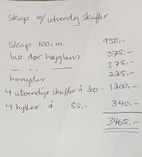 Skap m/ utvendig skuffer
Skap 100cm 950,-
lav dør høyglans 575,-
375,-
hengsler 225,-
4 utvendige skuffer á 300 - 1200,-
4 hyller á 85,- 340,-
3465,-